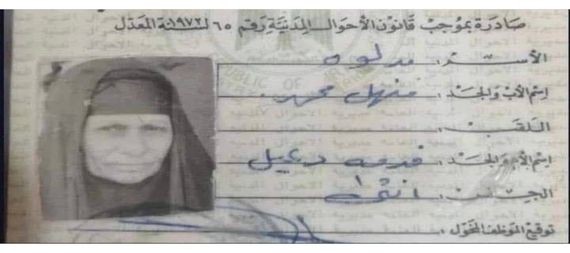 صادرة بموجب قانون الأحوال المدنية رقم ٦٥ لسنة ١٩٧٢ المعدل
الأسم:
اسم الأب والجد: منهل محمد
اللقب:
اسم الأم والجد: دعيل
الجنس: انثى
توقيع الموظف المخول: